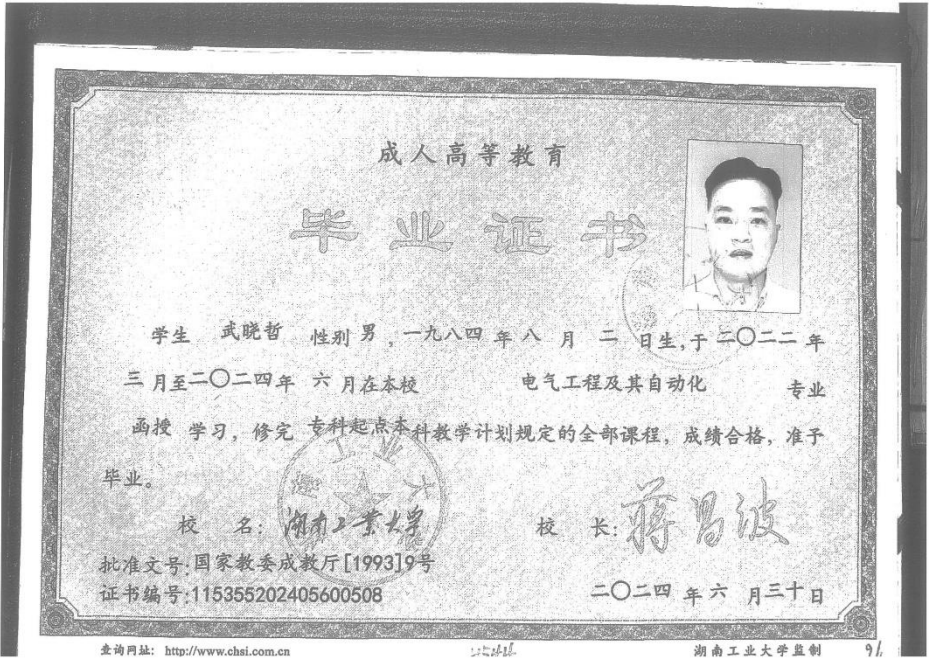 成人高等教育
毕业证书
学生 武晓哲 性别 男 ,一九八四 年 八 月 二 日生,于 二〇二二 年
三 月至二〇二四年 六 月在本校 电气工程及其自动化 专业
函授 学习, 修完 专科起点本科教学计划规定的全部课程, 成绩合格, 准予
毕业。
校 名: 湖南工业大学 校 长: 蒋昌波
批准文号:国家教委成教厅[1993]9号
证书编号:115355202405600508 二〇二四 年 六 月三十日
查询网址: http://www.chsi.com.cn 湖南工业大学监制